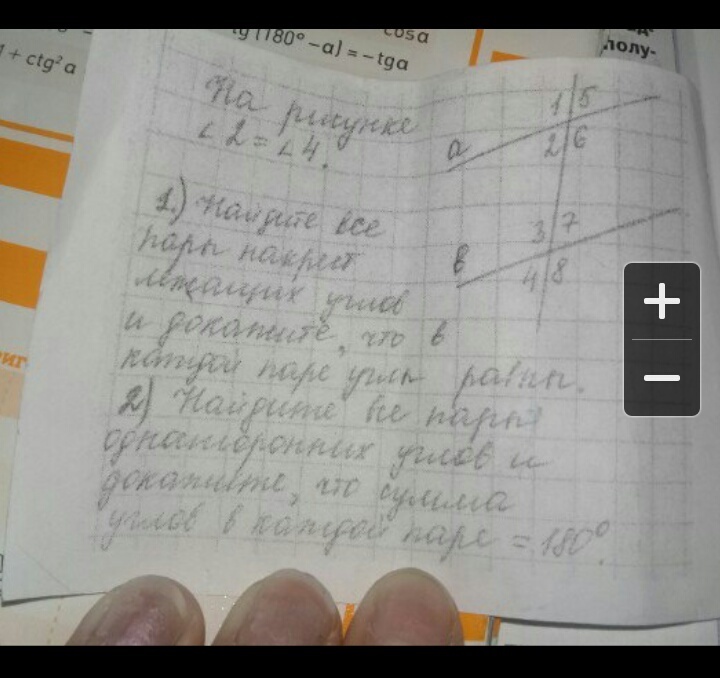 cosa
tg(180° – a) = –tga
1 + ctg²a
полу-
На рисунке
∠2 = ∠4.
1.) Найдите все
пары накрест
лежащих углов
и докажите, что в
каждой паре углы равны.
2) Найдите все пары
односторонних углов и
докажите, что сумма
углов в каждой паре = 180°.
1 5
a 2 6
3 7
в 4 8
+
−